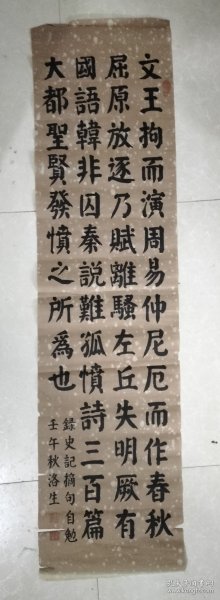 文王拘而演周易仲尼厄而作春秋
屈原放逐乃賦離騷左丘失明厥有
國語韓非囚秦說難孤憤詩三百篇
大都聖賢發憤之所爲也
錄史記摘句自勉
壬午秋洛生